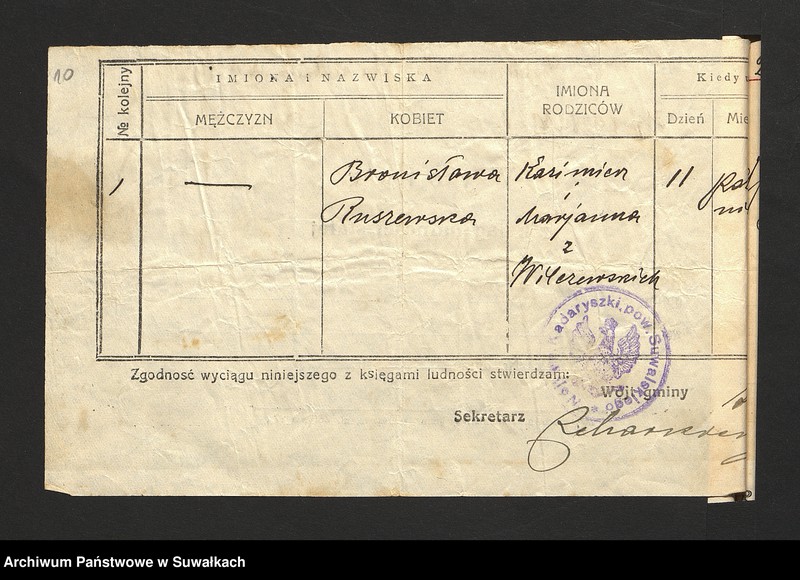 10
№ kolejny
IMIONA i NAZWISKA
MĘŻCZYZN
KOBIET
IMIONA
RODZICÓW
Kiedy
Dzień
Mie
1
—
Bronisława
Ruszewska
Kazimierz
i
Marjanna
z
Wilczewskich
11
paź
ni
Zgodność wyciągu niniejszego z księgami ludności stwierdzam:
Wójt gminy
Sekretarz
Kadaryszki, pow. Suwalskiego
Archiwum Państwowe w Suwałkach